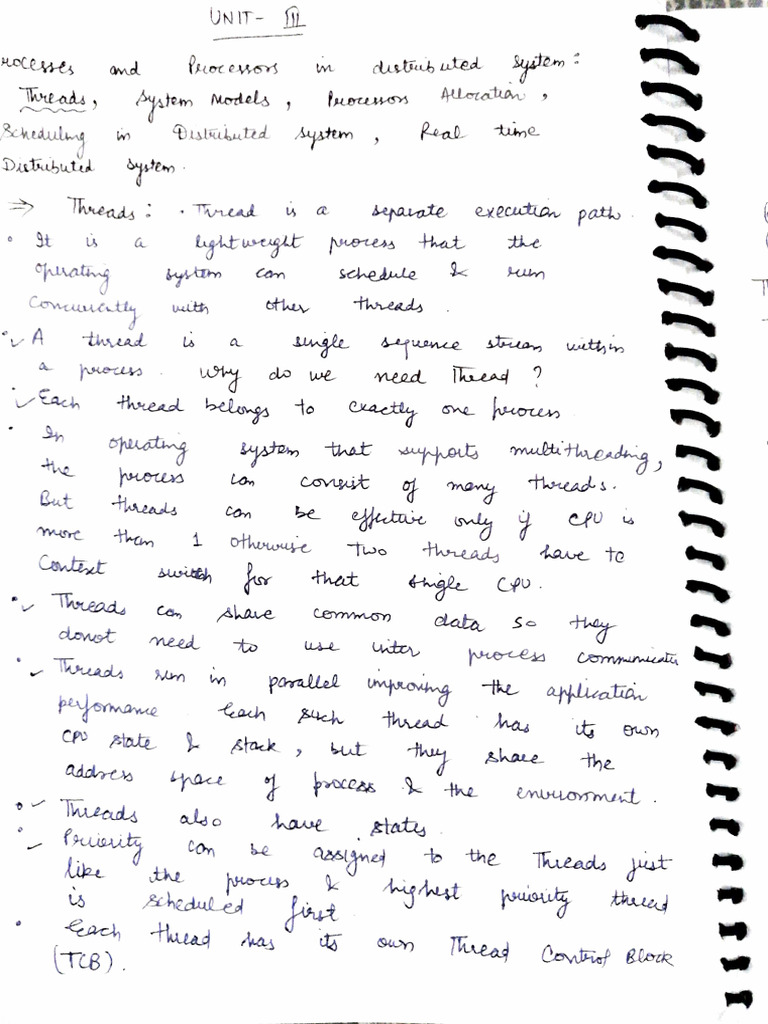 UNIT- III
rocesses and Processors in distributed system:
Threads, System Models, Processors Allocation,
Scheduling in Distributed system, Real time
Distributed system.
⇒ Threads: • Thread is a separate execution path.
• It is a lightweight process that the
operating system can schedule & run
concurrently with other threads.
•✓ A thread is a single sequence stream within
a process. Why do we need Thread?
•✓ Each thread belongs to exactly one process
• In operating system that supports multithreading,
the process can consist of many threads.
But threads can be effective only if CPU is
more than 1 otherwise two threads have to
Context switch for that single CPU.
•✓ Threads can share common data so they
donot need to use inter process communicatio
•✓ Threads run in parallel improving the application
performance. Each such thread has its own
CPU state & stack, but they share the
address space of process & the environment.
•✓ Threads also have states.
•✓ Priority can be assigned to the Threads just
like the process & highest priority thread
is scheduled first.
• Each thread has its own Thread Control Block
(TCB).